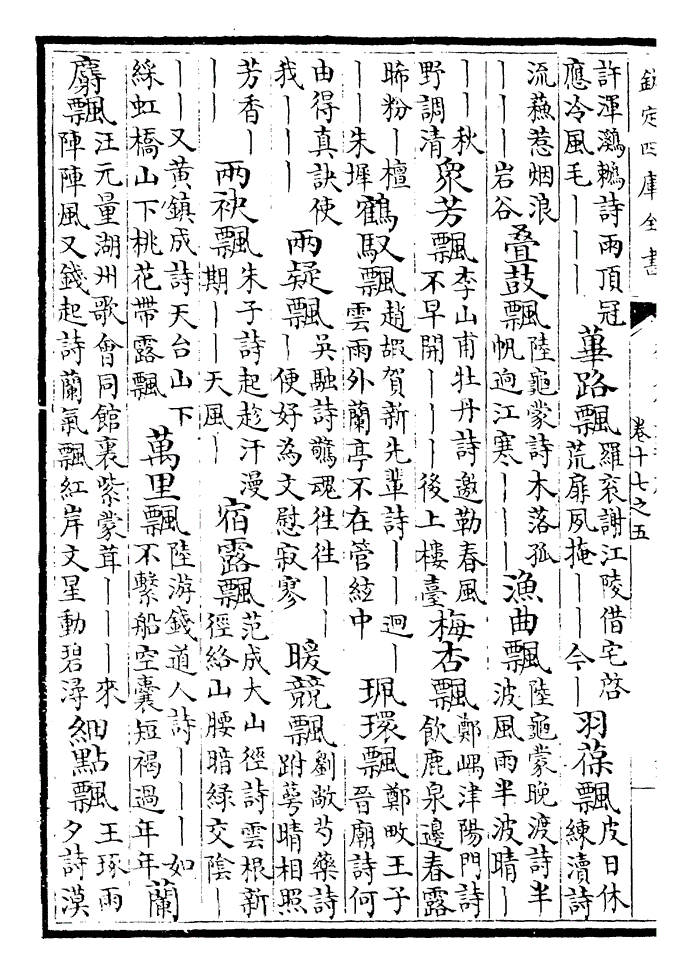 欽定四庫全書
卷十七之五
許渾鸂鶒詩雨頂冠應冷風毛｜｜｜蓽路飄羅衮謝江陵借宅啓荒扉夙掩｜｜今｜羽葆飄皮日休練瀆詩
流蘇惹烟浪｜｜｜岩谷疊鼓飄陸龜蒙詩木落孤帆迥江寒｜｜｜漁曲飄陸龜蒙晚渡詩半波風雨半波晴｜
｜｜秋野調清衆芳飄李山甫牡丹詩邀勒春風不早開｜｜｜後上樓臺梅杏飄鄭嵎津陽門詩飲鹿泉邊春露
晞粉｜檀｜｜朱墀鶴馭飄趙嘏賀新先輩詩｜｜｜迴｜雲雨外蘭亭不在管絃中珮環飄鄭畋王子晉廟詩何
由得真訣使我｜｜｜雨疑飄吳融詩驚魂往往｜｜｜便好為文慰寂寥暖競飄劉敞芍藥詩跗萼晴相照
芳香｜｜｜兩袂飄朱子詩起趁汗漫期｜｜天風｜宿露飄范成大山徑詩雲根新徑絡山腰暗綠交陰｜
｜｜又黄鎮成詩天台山下綵虹橋山下桃花帶露飄萬里飄陸游錢道人詩｜｜｜如不繫船空囊短褐過年年蘭
麝飄汪元量湖州歌會同館裏紫蒙茸｜｜｜來陣陣風又錢起詩蘭氣飄紅岸文星動碧潯細點飄王琢雨夕詩漠